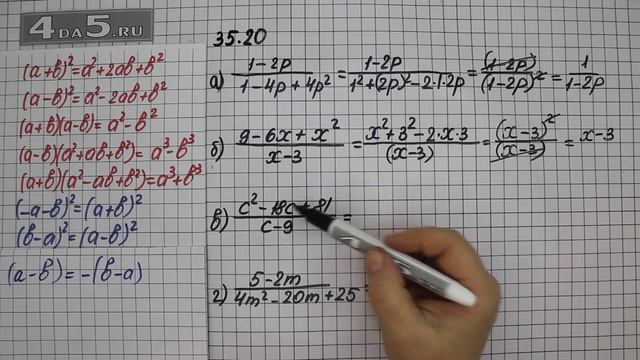 4 DA 5.RU
(a+b)²=a²+2ab+b²
(a-b)²=a²-2ab+b²
(a+b)(a-b)=a²-b²
(a-b)(a²+ab+b²)=a³-b³
(a+b)(a²-ab+b²)=a³+b³
(-a-b)²=(a+b)²
(b-a)²=(a-b)²
(a-b)=-(b-a)
35.20
а) (1-2p)/(1-4p+4p²) = (1-2p)/(1²+(2p)²-2·1·2p) = (1-2p)/(1-2p)² = 1/(1-2p)
б) (9-6x+x²)/(x-3) = (x²+3²-2·x·3)/(x-3) = (x-3)²/(x-3) = x-3
в) (c²-18c+81)/(c-9) =
г) (5-2m)/(4m²-20m+25) =